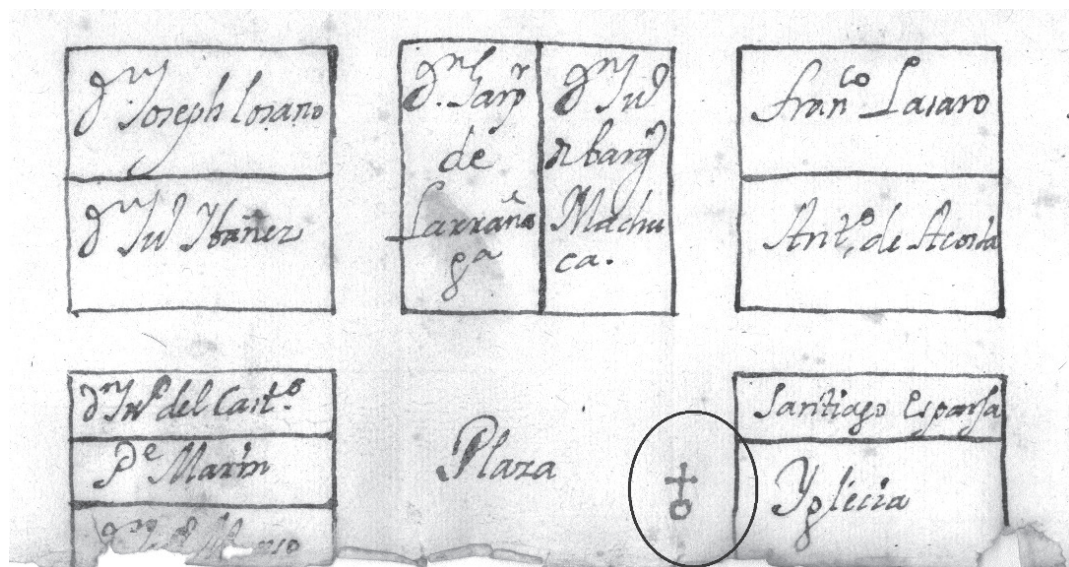 Dn Joseph Losano
Dn Jul Ybañez
Dn
de
Larraña
ga
Dn Jul
Machu
ca.
Franco Lasaro
Anto de Acosta
Dn Jul del Casto
Pe Marin
Plaza
Santiago Esparsa
Yglecia